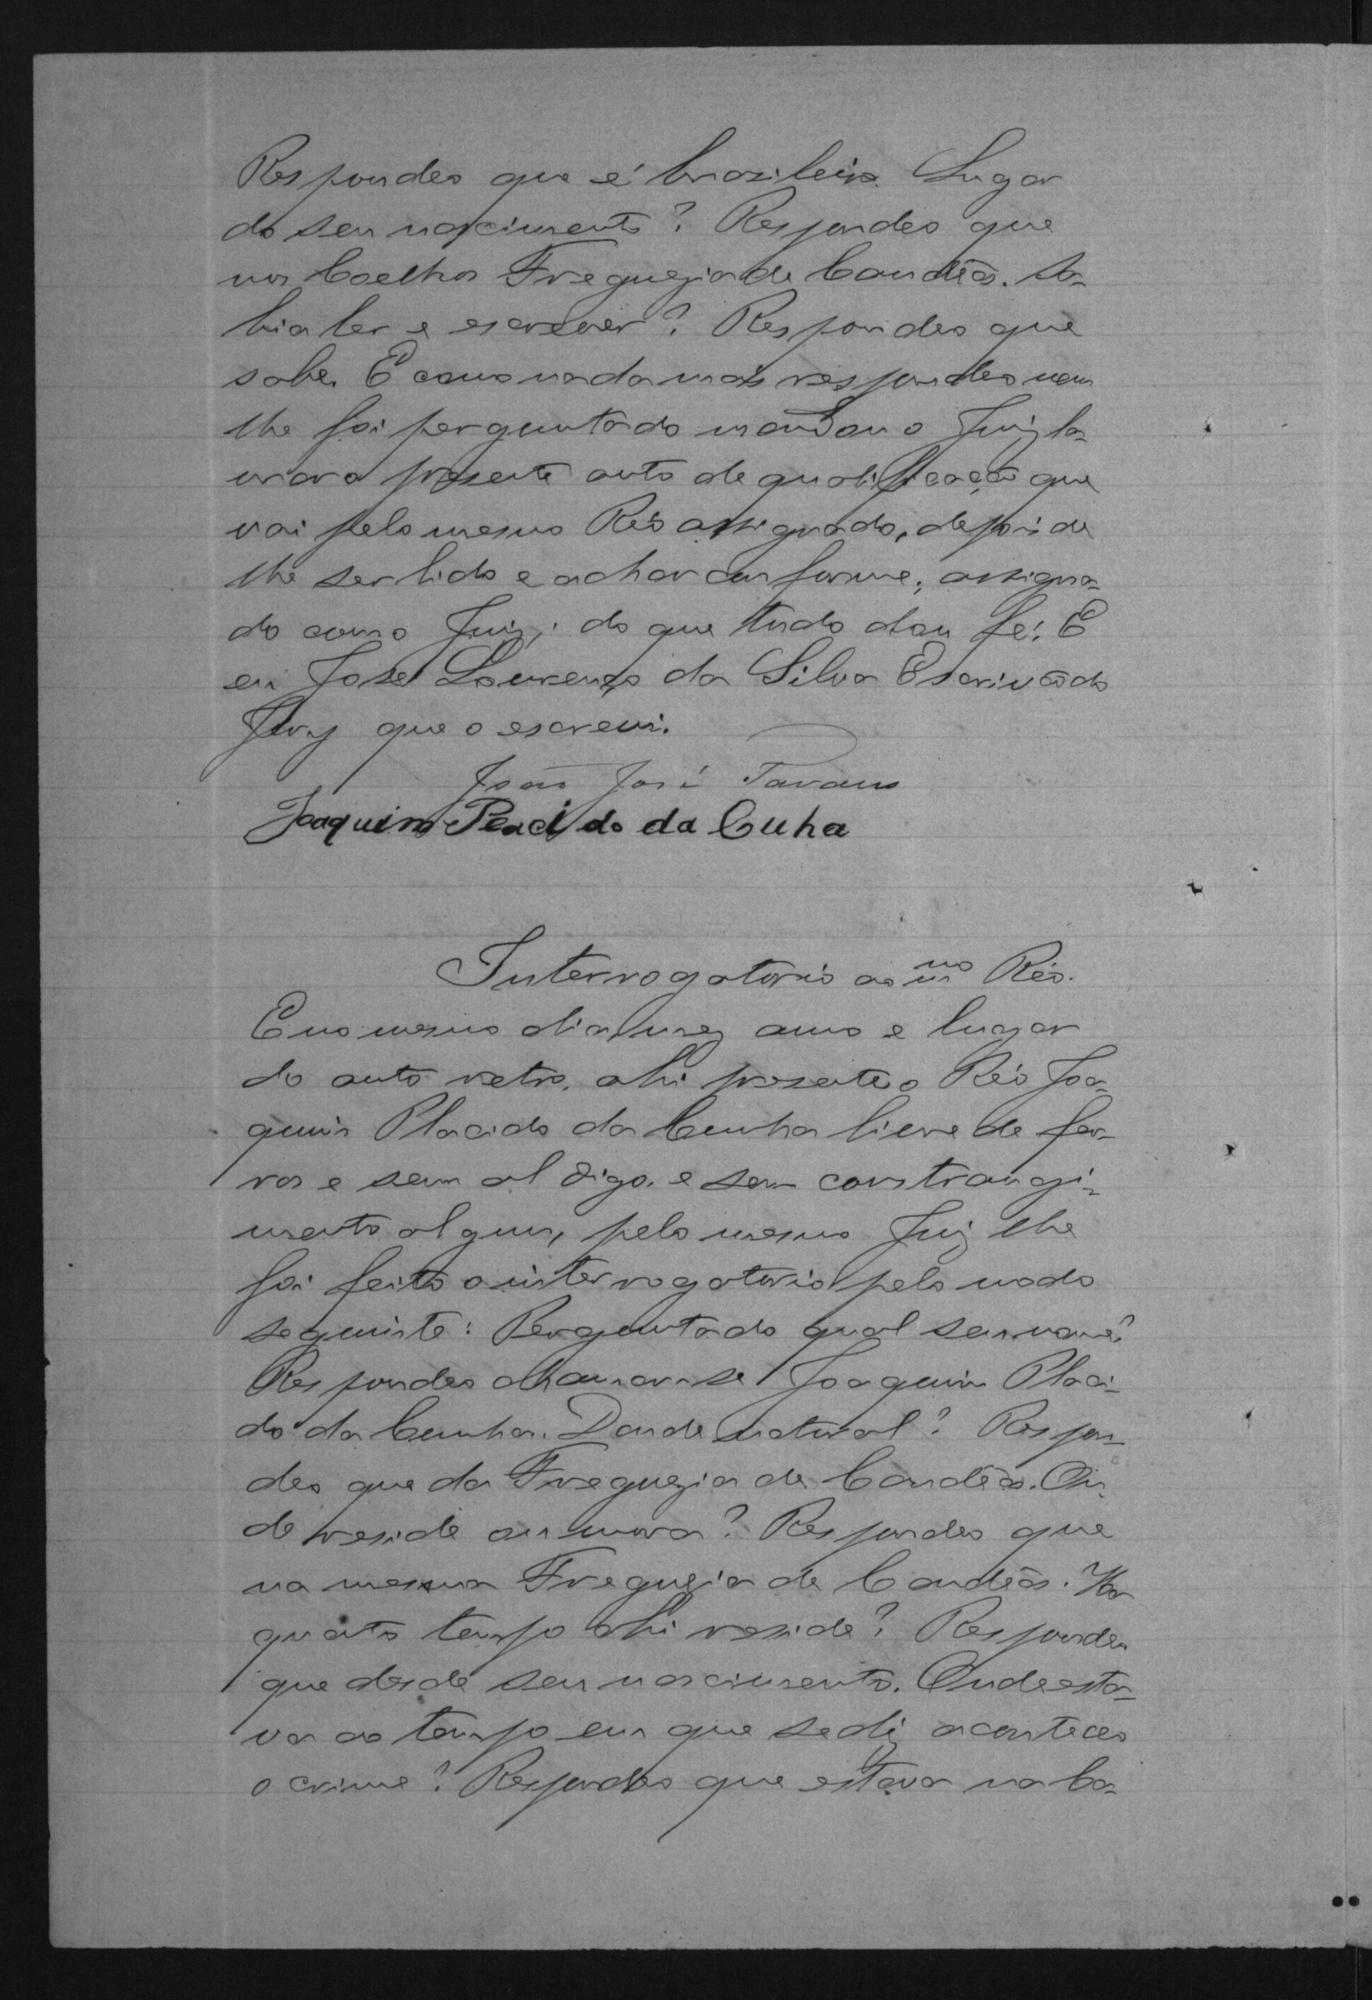 Respondeo que é brazileiro. Lugar
do seu nascimento? Respondeo que
nos Coelhos Freguezia de Candêas. Sa-
bia ler e escrever? Respondeo que
sabe. E como nada mais respondeo nem
lhe foi perguntado mandou o Juiz la-
vrar o presente auto de qualificação que
vai pelo mesmo Réo assignado, depois de
lhe ser lido e achar conforme, assigna-
do com o Juiz; do que tudo dou fé. E
eu José Lourenço da Silva Escrivão do
Jury que o escrevi.
João José
Joaquim Placido da Cuha
Interrogatorio ao mmo Réo.
E no mesmo dia, mez, anno e lugar
do auto retro, ahi presente o Réo Joa-
quim Placido da Cunha livre de fer-
ros e sem al digo, e sem constrangi-
mento algum, pelo mesmo Juiz lhe
foi feito o interrogatorio pelo modo
seguinte: Perguntado qual seu nome?
Respondeo chamar-se Joaquim Placi-
do da Cunha. Donde natural? Respon-
deo que da Freguezia de Candêas. On-
de reside ou mora? Respondeo que
na mesma Freguezia de Candêas. Ha
quanto tempo ahi reside? Respondeu
que desde seu nascimento. Onde esta-
va ao tempo em que se diz aconteceo
o crime? Respondeo que estava na Ca-